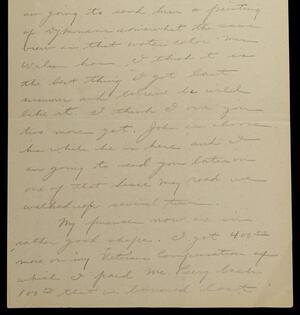 am going to send him a painting
of Vymans somewhat the same
view as that water color Mrs
Wilson has. I think it is
the best thing I got last
summer and believe he will
like it. I think I owe you
two more yet. John can choose
his while he is here and I
am going to send you later on
one of that base May road we
walked up several times.
My finances now are in
rather good shape. I got 400 00
more on my Veterans Compensation of
which I paid Mr. Levy back
100 00 that we borrowed last